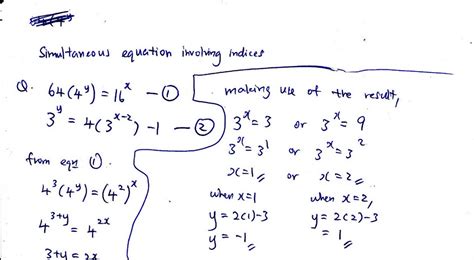 Simultaneous equation involving indices
Q. 64(4^y) = 16^x — ①
3^y = 4(3^{x-2}) - 1 — ②
from eqn ①.
4^3(4^y) = (4^2)^x
4^{3+y} = 4^{2x}
3+y = 2x
making use of the result,
3^x = 3 or 3^x = 9
3^x = 3^1 or 3^x = 3^2
x = 1 or x = 2
when x=1 when x=2,
y = 2(1)-3 y = 2(2)-3
y = -1 = 1